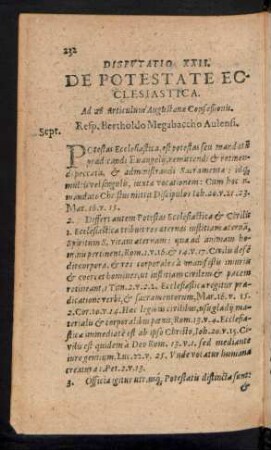 232
DISPVTATIO XXII.
DE POTESTATE EC-
CLESIASTICA.
Ad 28 Articulum Augustanæ Confessionis.
Resp. Bertholdo Megabaccho Aulensi.
Sept.
POtestas Ecclesiastica, est potestas seu mandatũ
prædicandi Evangelij, remittendi & retinen-
di peccata, & administrandi Sacramenta: idq́;
multis vel singulis, iuxta vocationem: Cum hoc
mandato Christus mittit Discipulos Ioh. 20. v. 21. 23.
Mat. 16. v. 15.
2. Differt autem Potestas Ecclesiastica & Civilis
1. Ecclesiastica tribuit res æternas iustitiam æternã,
Spiritum S. vitam æternam: quæ ad animam ho-
minis pertinent, Rom. 1. v. 16 & 14. v. 17. Civilis defẽ-
dit corpora, & res corporales à manifestis iniurijs
& coercet homines, ut iustitiam civilem & pacem
retineant, 1 Tim. 2. v. 2. 2. Ecclesiastica regitur præ-
dicatione verbi, & sacramentorum, Mar. 16. v. 15.
2. Cor. 10. v. 24. Hæc legibus civilibus, usu gladij ma-
terialis & corporalibus pænis, Rom. 13. v. 4. Ecclesia-
stica immediate est ab ipso Christo, Ioh. 20. v. 23. Ci-
vilis est quidem à Deo Rom. 13. v. 1. sed mediante
iure gentium, Luc. 22. v. 25. Unde vocatur humana
creatura 1. Pet. 2. v. 13.
3. Officia igitur utriusq́; Potestatis distincta sunt:
&